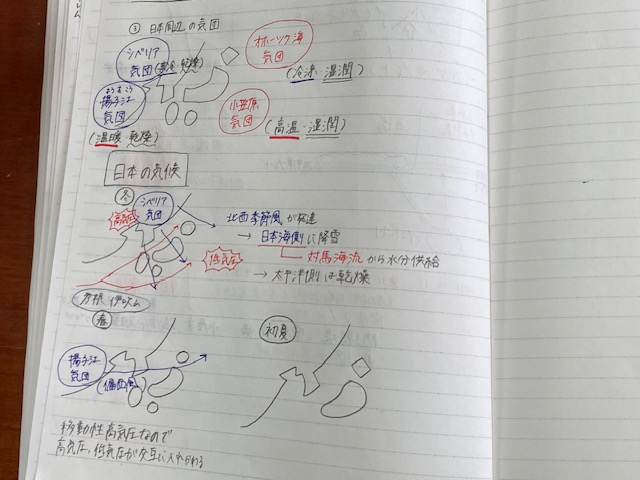 ③ 日本周辺の気団
シベリア
気団
(寒冷・乾燥)
オホーツク海
気団
(冷涼・湿潤)
ようすこう
揚子江
気団
(温暖・乾燥)
小笠原
気団
(高温・湿潤)
日本の気候
冬
シベリア
気団
高気圧
北西季節風が発達
→ 日本海側に降雪
対馬海流から水分供給
低気圧
→ 太平洋側は乾燥
春
揚子江
気団
(偏西風)
初夏
移動性高気圧なので
高気圧、低気圧が交互に入れかわる